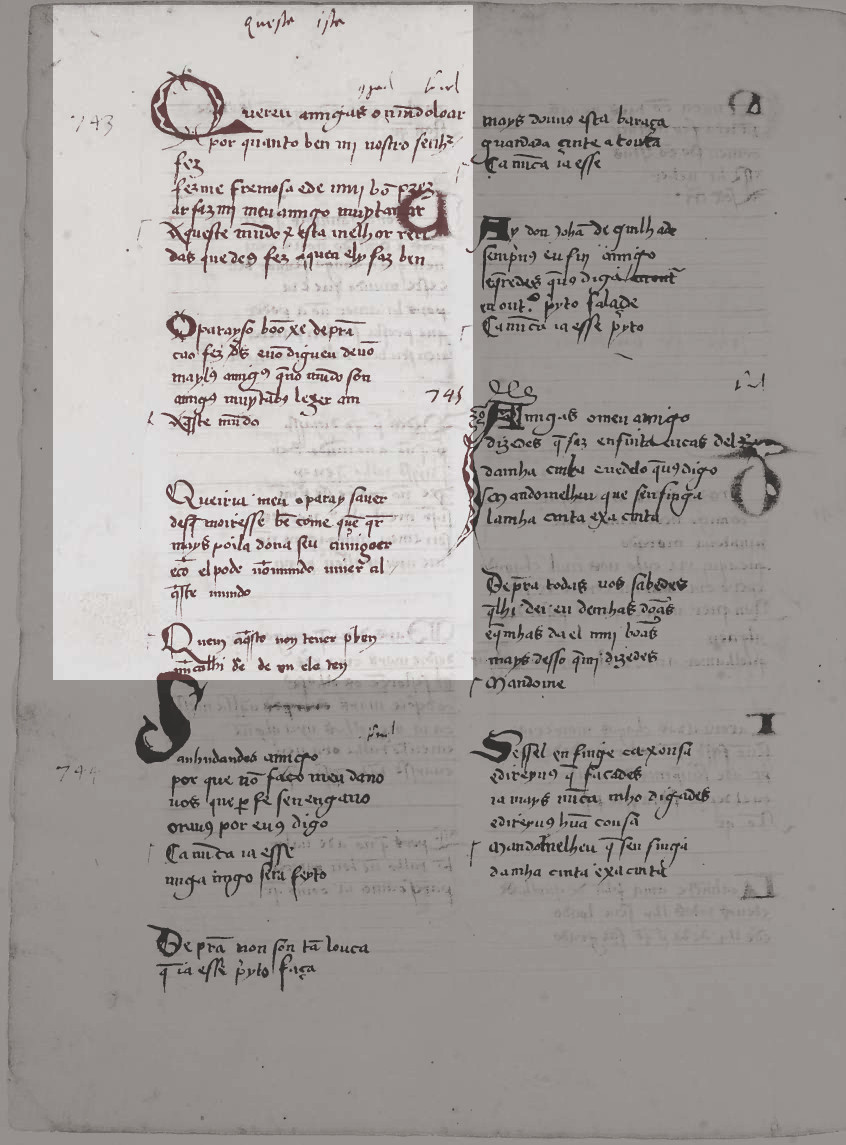 Queste iste
743
Quereu amigas o mūdo loar
por quanto ben mj nostro senhᵒʳ
fez
fezme fremosa ede muj bō prez
ar faz mj meu amigo muyta
Aqueste mūdo x esta melhor ren
das que deus fez aquen el hy faz ben
Oparayso boo xe deprā
cao fez d̄s
mays amigꝰ quno mūdo son
amigꝰ muytābr̄ lezer am
Aq̄ste mūdo
Queiria meu o paray sauer
desq̄ moiresse bē come quē qr̄
mays poila dona seu amigoer
ecō el pode nō mundo uiuer al
q̄ste mundo
Quem aq̄sto non teuer pben
744
Sanhudandes amigo
por que nō faço meu dano
uos que p fe sen engano
orauꝰ por euꝰ digo
Ca nūca ia esse
miga sera feyto
De prā non sōn tā louca
q̄ ia esse p̄yto faça
mays douuo esta baraça
guardada cinta a touca
Ca nūca ia esse
Ay don Johā de guilhade
sempuꝰ eu fuj amigo
en out p̄yto falade
Ca nūca ia esse p̄yto
745
Amigas o meu amigo
dizedes q̄ faz enfinta
damha cinta euedelo quꝰ digo
Mandoinelheu que senfinga
lamha cinta exa cinta
De prā todas uos sabedes
q̄lhi dei eu demhas dōas
eq̄mhas da el muj bōas
mays desso q̄mj dizedes
Mandoine
Sessel en finge ca xousa
edireyuꝰ q̄ façades
ia mays nūca mho digades
edireyuꝰ hūa cousa
Mandoinelheu q̄ sen finga
damha cinta exa cinta